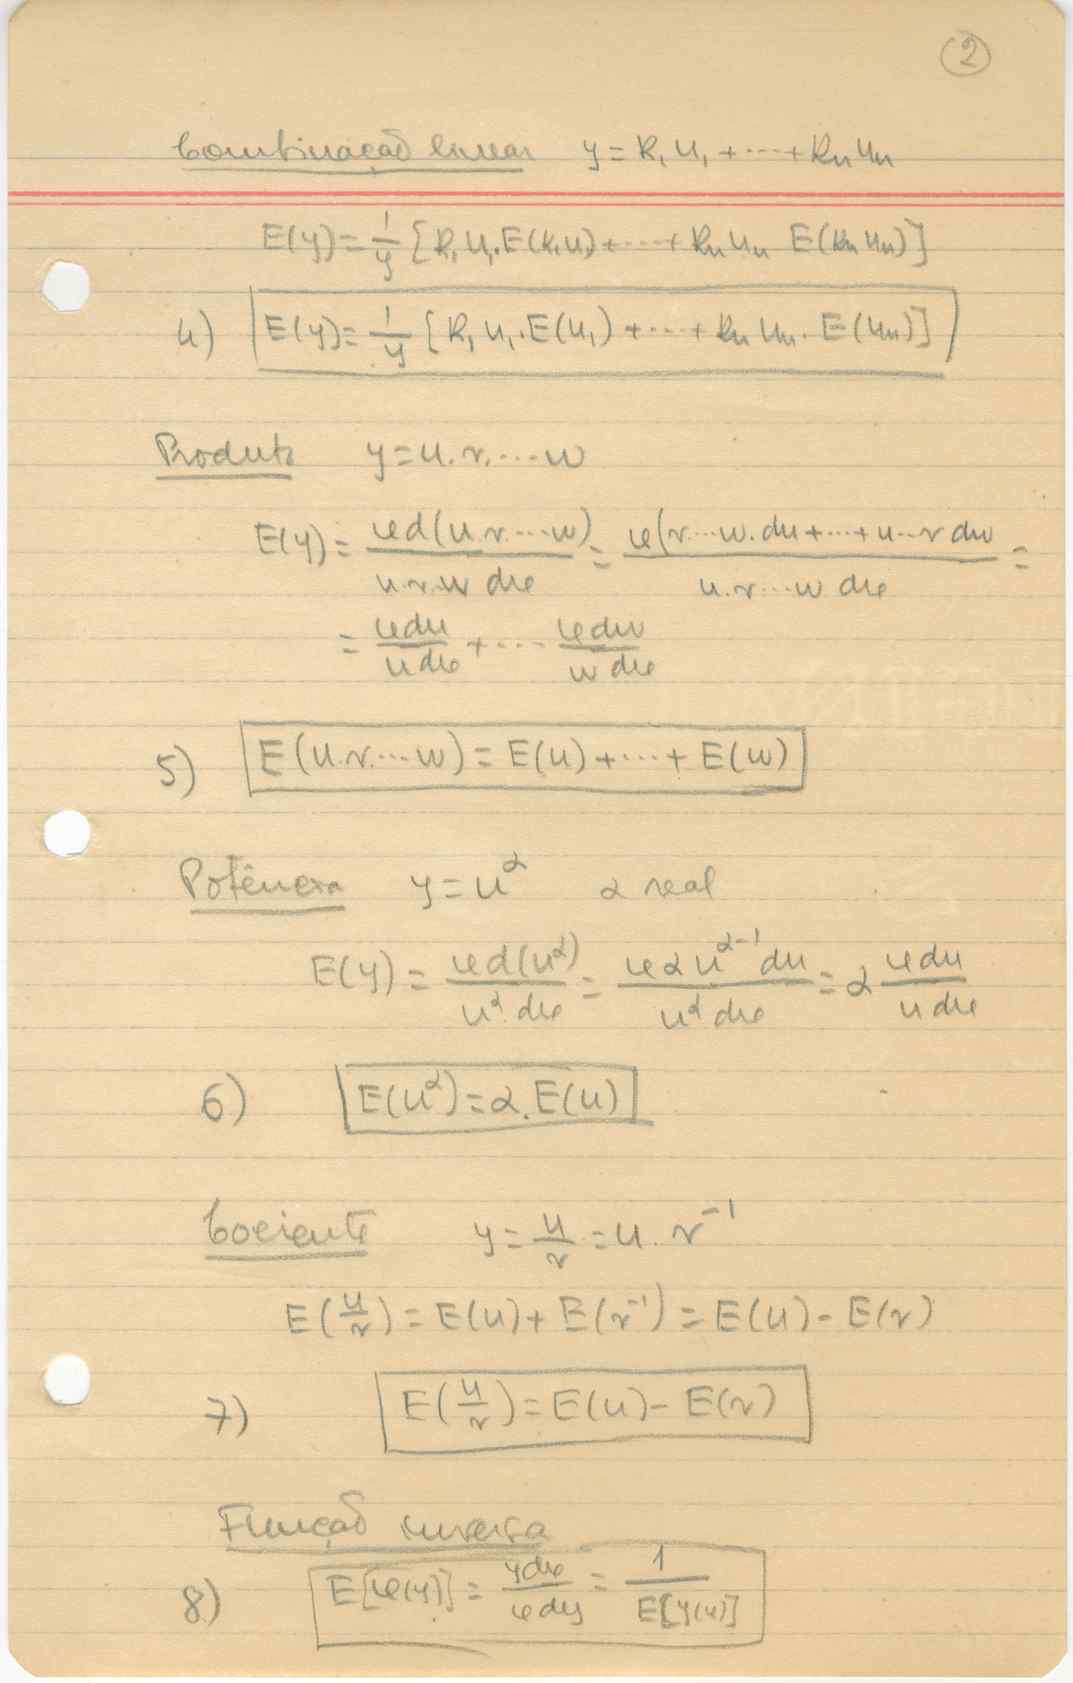 2
Combinação linear y = k₁u₁ + ··· + kₙuₙ
E(y) = 1/y [k₁u₁.E(k₁u₁) + ··· + kₙuₙ E(kₙuₙ)]
4) E(y) = 1/y [k₁u₁.E(u₁) + ··· + kₙuₙ. E(uₙ)]
Produto y = u.v.···w
E(y) = xd(u.v.···w)/u.v.w dx = x(v···w.du + ··· + u···v dw/u.v···w dx =
= xdu/udx + ··· xdw/w dx
5) E(u.v.···w) = E(u) + ··· + E(w)
Potência y = u^α α real
E(y) = xd(u^α)/u^α dx = xαu^(α-1)du/u^α dx = α xdu/udx
6) E(u^α) = α.E(u)
Cociente y = u/v = u.v⁻¹
E(u/v) = E(u) + E(v⁻¹) = E(u) - E(v)
7) E(u/v) = E(u) - E(v)
Função inversa
8) E[x(y)] = ydx/xdy = 1/E[y(x)]